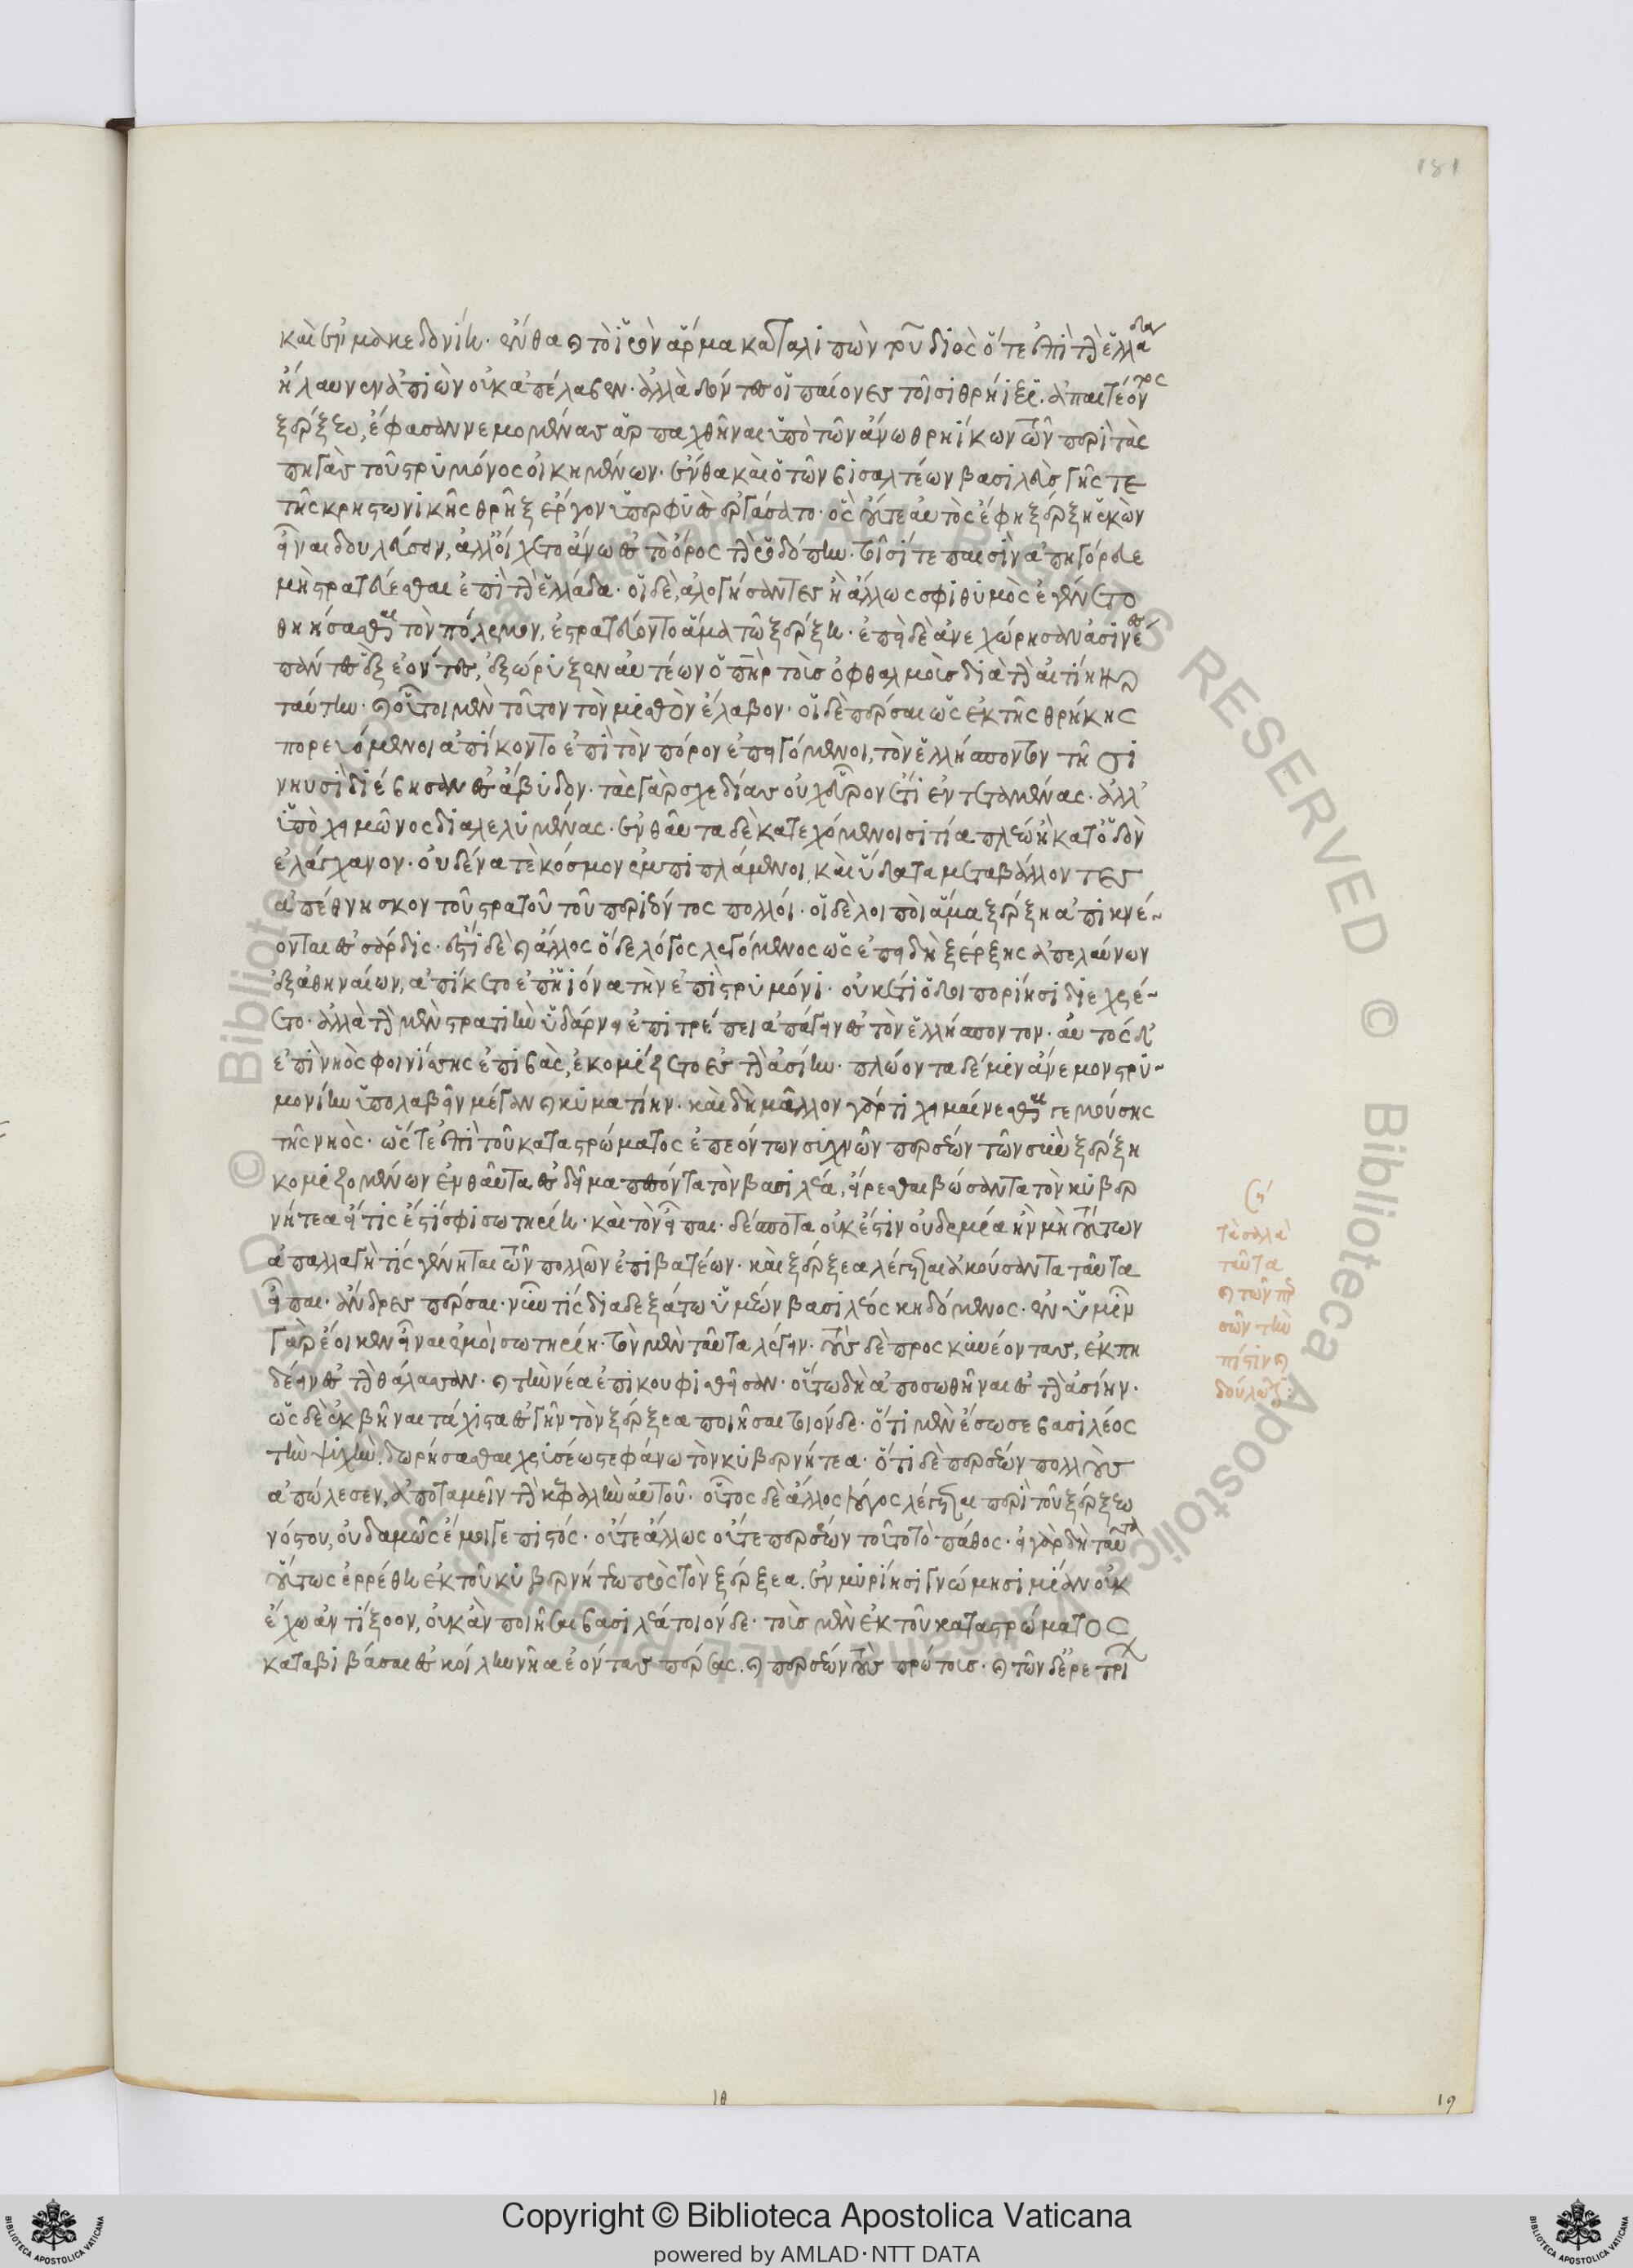 181
καὶ ἐν μακεδονίη. ἔνθα καὶ τὸ ἱρὸν ἅρμα καταλιπὼν τοῦ διὸς ὅτε ἐπὶ τὴν ἑλλάδα
ἤλαυνεν ἀπιὼν οὐκ ἀπέλαβεν. ἀλλὰ δόντες οἱ παίονες τοῖσι θρήιξι. ἀπαιτέοντος
ξέρξεω, ἔφασαν νεμομένας ἁρπαχθῆναι ὑπὸ τῶν ἄνω θρηίκων τῶν περὶ τὰς
πηγὰς τοῦ στρυμόνος οἰκημένων. ἔνθα καὶ ὁ τῶν βισαλτέων βασιλεὺς γῆς τε
τῆς κρηστωνικῆς θρῆιξ ἔργον ὑπερφυὲς ἐργάσατο. ὃς οὔτε αὐτὸς ἔφη ξέρξη ἑκὼν
εἶναι δουλεύσειν, ἀλλ' οἴχετο ἄνω ἐς τὸ ὄρος τὴν ῥοδόπην. τοῖσί τε παισὶν ἀπηγόρευε
μὴ στρατεύεσθαι ἐπὶ τὴν ἑλλάδα. οἱ δὲ, ἀλογήσαντες ἢ ἄλλως σφι θυμὸς ἐγένετο
θηήσασθαι τὸν πόλεμον, ἐστρατεύοντο ἅμα τῶ ξέρξη. ἐπεὶ δὲ ἀνεχώρησαν ἀσινέες
πάντες ἓξ ἐόντες, ἐξώρυξεν αὐτέων ὁ πατὴρ τοὺς ὀφθαλμοὺς διὰ τὴν αἰτίην
ταύτην. καὶ οὗτοι μὲν τοῦτον τὸν μισθὸν ἔλαβον. οἱ δὲ πέρσαι ὡς ἐκ τῆς θρήκης
πορευόμενοι ἀπίκοντο ἐπὶ τὸν πόρον ἐπειγόμενοι, τὸν ἑλλήσποντον τῆσι
νηυσὶ διέβησαν ἐς ἄβυδον. τὰς γὰρ σχεδίας οὐχ εὗρον ἔτι ἐντεταμένας. ἀλλ'
ὑπὸ χειμῶνος διαλελυμένας. ἐνθαῦτα δὲ κατεχόμενοι σιτία πλέω ἢ κατ' ὁδὸν
ἐλάγχανον. οὐδένα τε κόσμον ἐμπιπλάμενοι, καὶ ὕδατα μεταβάλλοντες
ἀπέθνησκον τοῦ στρατοῦ τοῦ περιεόντος πολλοί. οἱ δὲ λοιποὶ ἅμα ξέρξη ἀπικνέ-
ονται ἐς σάρδις. ἔστι δὲ καὶ ἄλλος ὅδε λόγος λεγόμενος ὡς ἐπειδὴ ξέρξης ἀπελαύνων
ἐξ ἀθηναίων, ἀπίκετο ἐπ' ἠιόνα τὴν ἐπὶ στρυμόνι. οὐκέτι ὁδοιπορίησι διεχρέ-
ετο. ἀλλὰ τὴν μὲν στρατιὴν ὑδάρνει ἐπιτρέπει ἀπάγειν ἐς τὸν ἑλλήσποντον. αὐτὸς δ'
ἐπὶ νηὸς φοινίσσης ἐπιβὰς, ἐκομίζετο ἐς τὴν ἀσίην. πλώοντα δέ μιν ἄνεμον στρυ-
μονίην ὑπολαβεῖν μέγαν καὶ κυματίην. καὶ δὴ μᾶλλον γάρ τι χειμαίνεσθαι γεμούσης
τῆς νηὸς. ὥστε ἐπὶ τοῦ καταστρώματος ἐπεόντων συχνῶν περσέων τῶν σὺν ξέρξη
κομιζομένων ἐνθαῦτα ἐς δεῖμα πεσόντα τὸν βασιλέα, εἴρεσθαι βώσαντα τὸν κυβερ
νήτεα εἴ τις ἔστι σφι σωτηρίη. καὶ τὸν εἶπαι. δέσποτα οὐκ ἔστιν οὐδεμία ἢν μὴ τούτων
ἀπαλλαγή τις γένηται τῶν πολλῶν ἐπιβατέων. καὶ ξέρξεα λέγεται ἀκούσαντα ταῦτα
εἶπαι. ἄνδρες πέρσαι. νῦν τις διαδεξάτω ὑμέων βασιλέος κηδόμενος. ἐν ὑμῖν
γὰρ ἔοικεν εἶναι ἐμοὶ σωτηρίη. τὸν μὲν ταῦτα λέγειν. τοὺς δὲ προσκυνέοντας, ἐκπη
δέειν ἐς τὴν θάλασσαν. καὶ τὴν νέα ἐπικουφισθεῖσαν. οὕτω δὴ ἀποσωθῆναι ἐς τὴν ἀσίην.
ὡς δὲ ἐκβῆναι τάχιστα ἐς γῆν τὸν ξέρξεα ποιῆσαι τοιόνδε. ὅτι μὲν ἔσωσε βασιλέος
τὴν ψυχὴν. δωρήσασθαι χρυσέω στεφάνω τὸν κυβερνήτεα. ὅτι δὲ περσέων πολλοὺς
ἀπώλεσεν, ἀποταμεῖν τὴν κεφαλὴν αὐτοῦ. οὗτος δὲ ἄλλος λόγος λέγεται περὶ τοῦ ξέρξεω
νόστου, οὐδαμῶς ἔμοιγε πιστός. οὔτε ἄλλως οὔτε περσέων τοῦτο τὸ πάθος. εἰ γὰρ δὴ ταῦτα
οὕτως ἐρρέθη ἐκ τοῦ κυβερνήτεω πρὸς τὸν ξέρξεα. ἐν μυρίησι γνώμησι μίαν οὐκ
ἔχω ἀντίξοον, οὐκ ἂν ποιῆσαι βασιλέα τοιόνδε. τοὺς μὲν ἐκ τοῦ καταστρώματος
καταβιβάσαι ἐς κοίλην νῆα ἐόντας πέρσας. καὶ περσέων τοὺς πρώτους. καὶ τῶν δ' ἐρετρ
τὰς ἀλλὰ
ταῦτα
καὶ τῶν περ
σῶν τὴν
πίστιν καὶ
ιθ
19